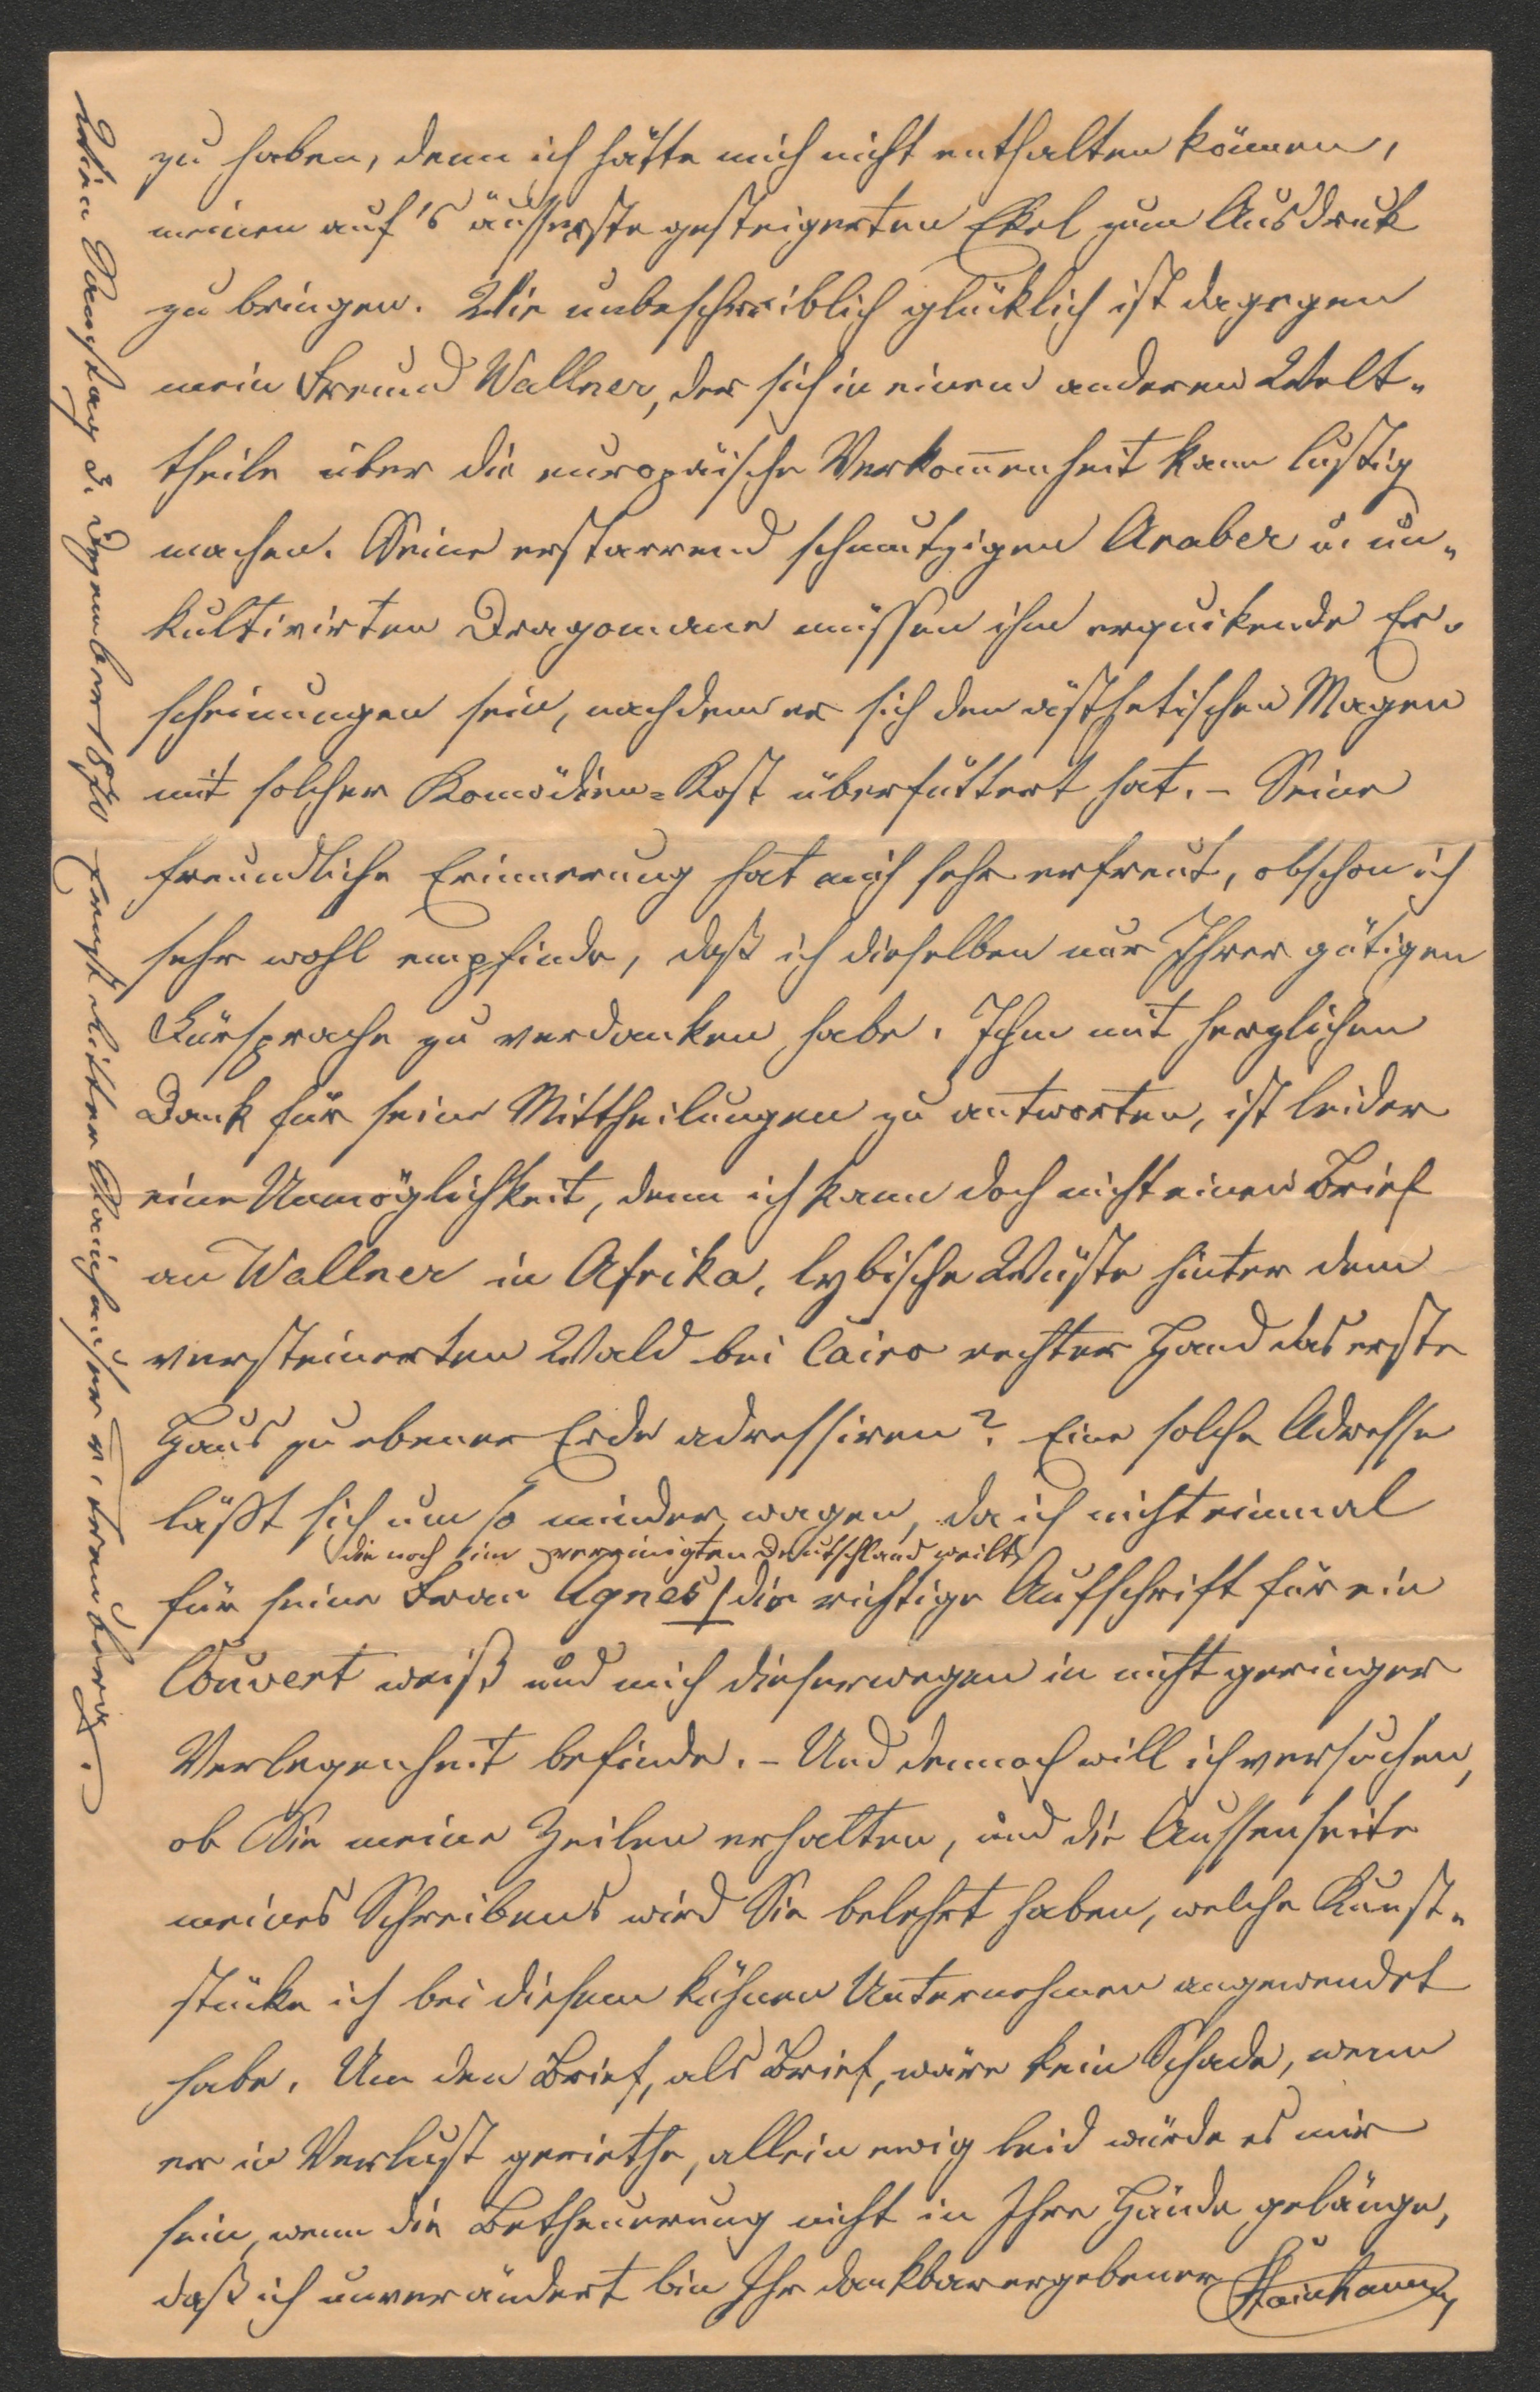 zu haben, denn ich hätte mich nicht enthalten können,
meinen auf's äusserste gesteigerten Ekel zum Ausdruk
zu bringen. Wie unbeschreiblich glüklich ist dagegen
mein Freund Wallner, der sich in einem anderen Welt-
theile über die europäische Verkom̅enheit kann lustig
machen. Seine erstarrend schmutzigen Araber u. un-
kultivirten Dragomane müssen ihm erquikende Er-
scheinungen sein, nachdem er sich den ästhetischen Magen
mit solcher Komödien-Kost überfüttert hat. – Seine
freundliche Erinnerung hat mich sehr erfreut, obschon ich
sehr wohl empfinde, daß ich dieselben nur Ihrer gütigen
Fürsprache zu verdanken habe. Ihm mit herzlichen
Dank für seine Mittheilungen zu antworten, ist leider
eine Unmöglichkeit, denn ich kann doch nicht einen Brief
an Wallner in Afrika, lybische Wüste hinter dem
versteinerten Wald bei Cairo rechter Hand das erste
Haus zu ebener Erde adressiren? Eine solche Adresse
läßt sich um so minder wagen, da ich nicht einmal
die noch im vereinigten Deutschland weilt
für seine Frau Agnes die richtige Aufschrift für ein
Couvert weiß und mich dieserwegen in nicht geringer
Verlegenheit befinde. – Und dennoch will ich versuchen,
ob Sie meine Zeilen erhalten, und die Aussenseite
meines Schreibens wird Sie belehrt haben, welche Kunst-
stüke ich bei diesem kühnen Unternehmen angewendet
habe. Um den Brief, als Brief, wäre kein Schade, wenn
er in Verlust geriethe, allein ewig leid würde es mir
sein, wenn die Betheuerung nicht in Ihre Hände gelänge,
daß ich unverändert bin Ihr dankbar ergebener
Wien Samstag 3. Dezember 1870